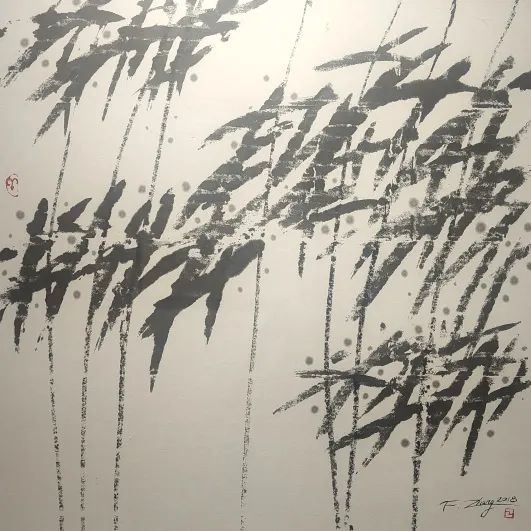 F. Zhang 2018